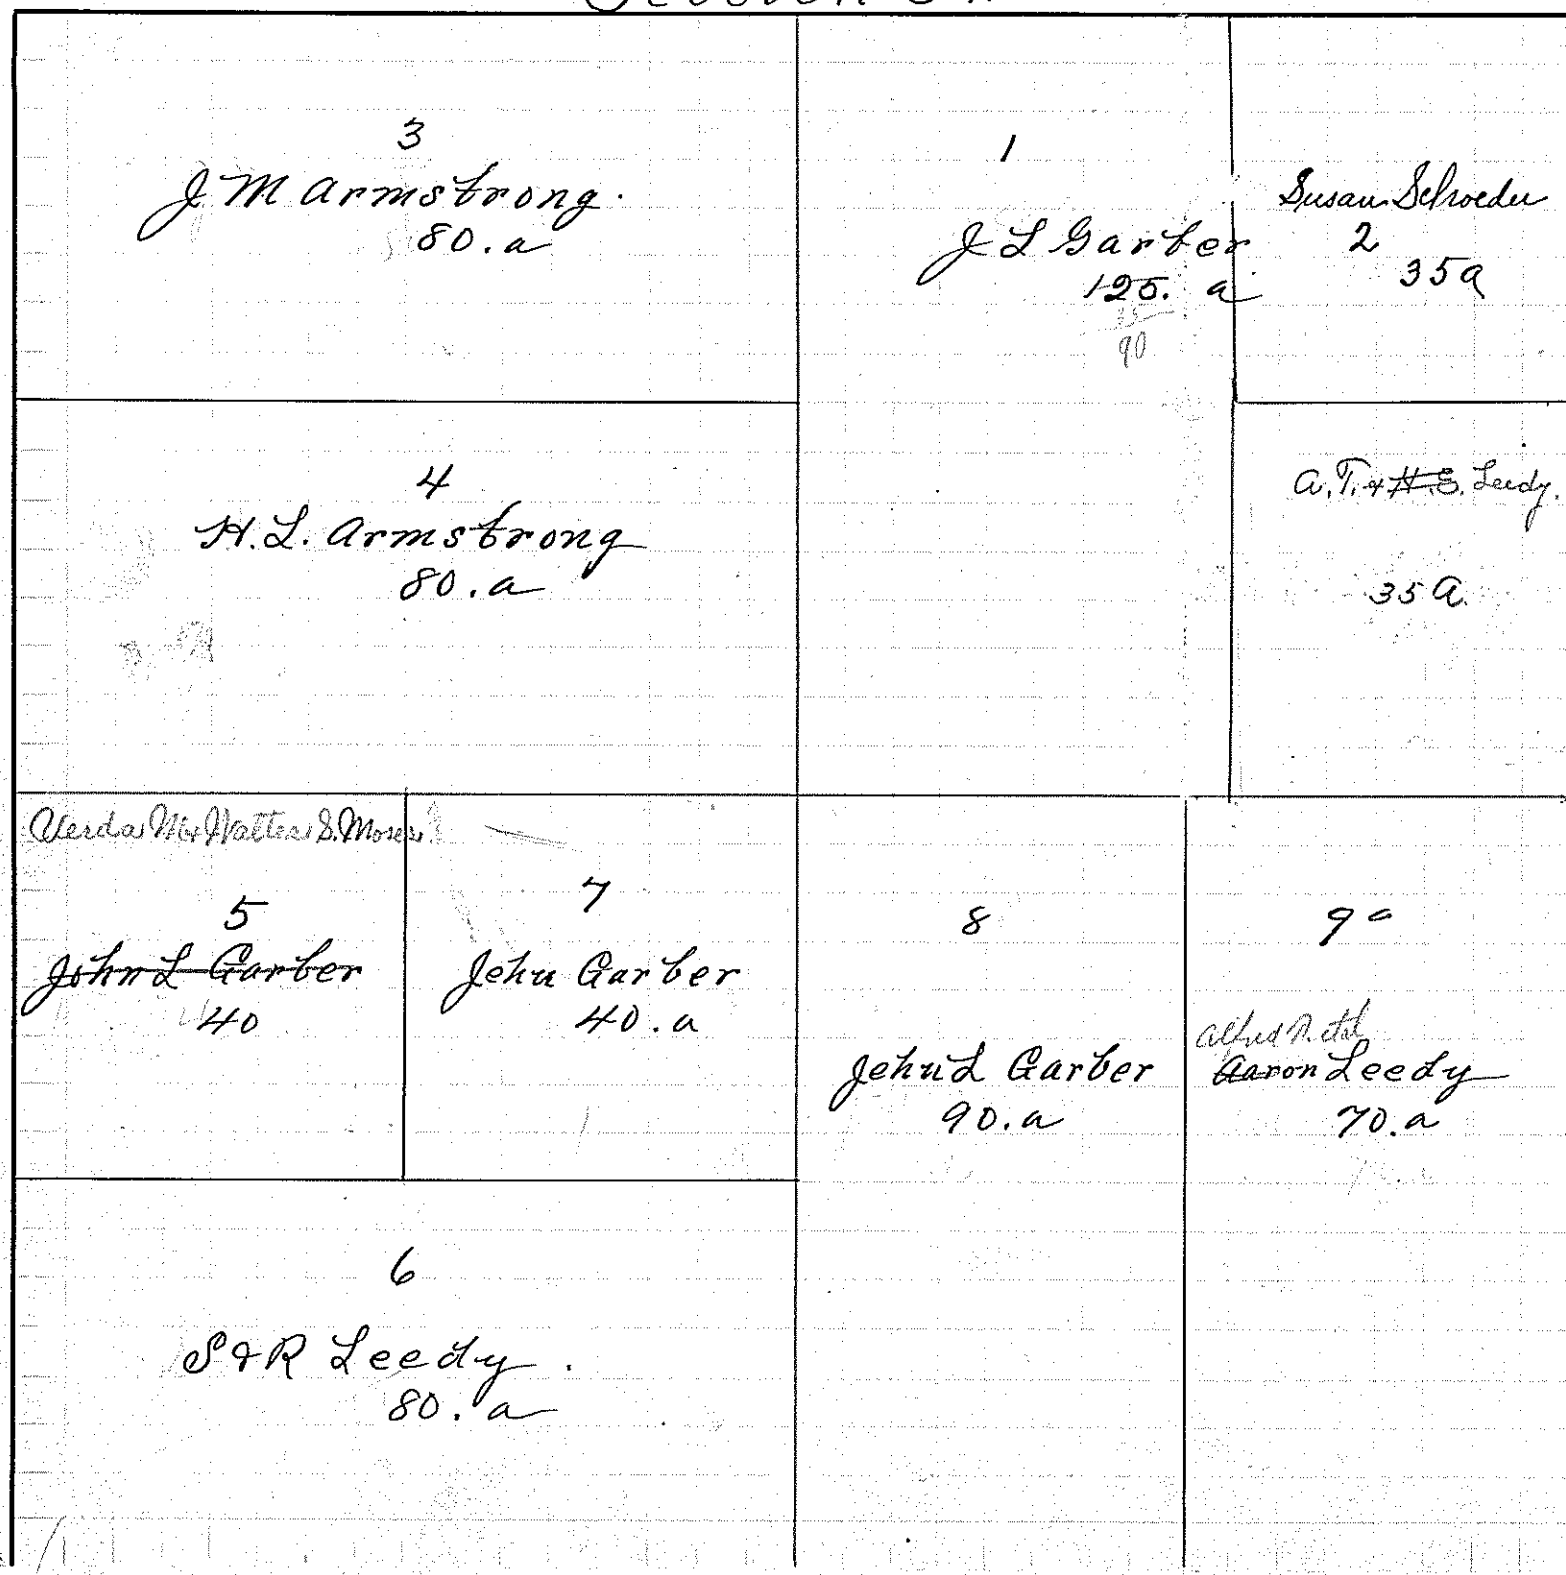 Section
3
J M Armstrong.
80.a
1
J L Garber
125. a
90
Susan Schroeder
2
35a
4
H.L. Armstrong
80.a
A.T. & H.S. Leedy.
35 A.
Walter S. Moser
5
John L Garber
40
7
Jehu Garber
40.a
8
Jehu L Garber
90.a
9 a
Alfred
Aaron Leedy
70.a
6
S & R Leedy.
80.a